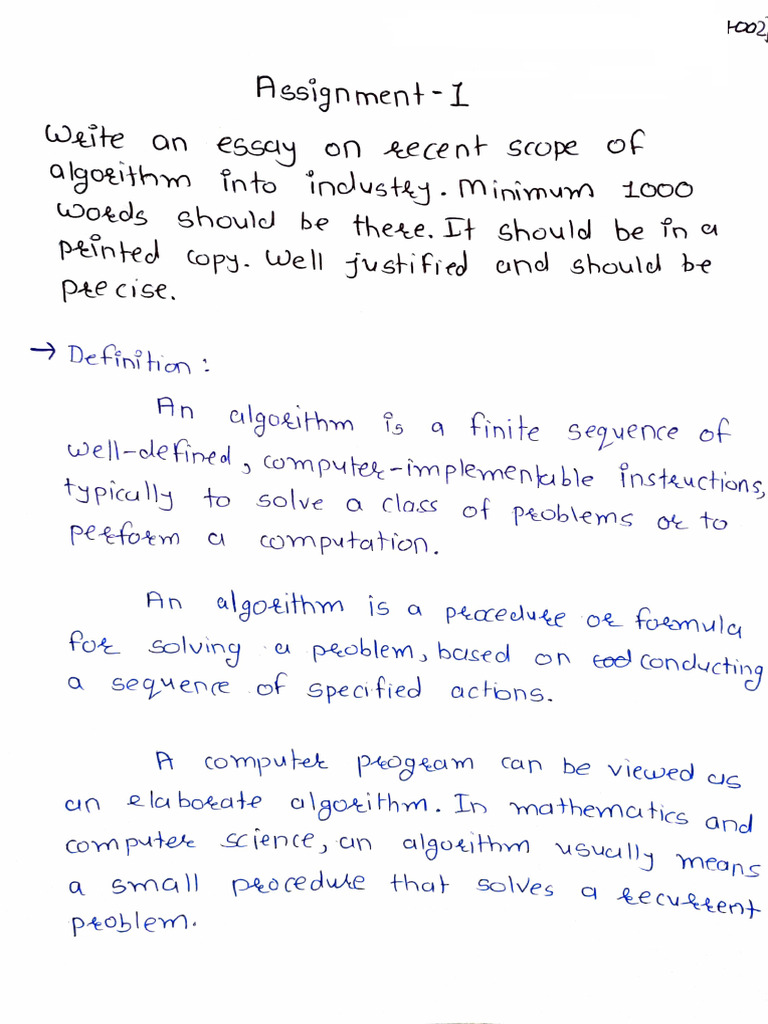 Assignment-1
Write an essay on recent scope of
algorithm into industry. Minimum 1000
words should be there. It should be in a
printed copy. Well justified and should be
precise.
→ Definition:
An algorithm is a finite sequence of
well-defined, computer-implementable instructions,
typically to solve a class of problems or to
perform a computation.
An algorithm is a procedure or formula
for solving a problem, based on conducting
a sequence of specified actions.
A computer program can be viewed as
an elaborate algorithm. In mathematics and
computer science, an algorithm usually means
a small procedure that solves a recurrent
problem.